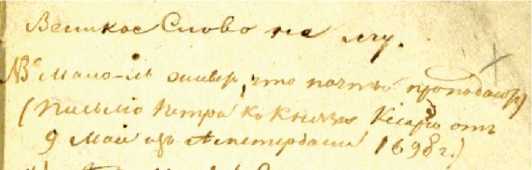 Великое Слово не лгу.
NB Мало-ль живер, что почта пропадает)
(Письмо Петра ко Князю Кесарю отъ
9 Мая изъ Амстердама 1698 г.)